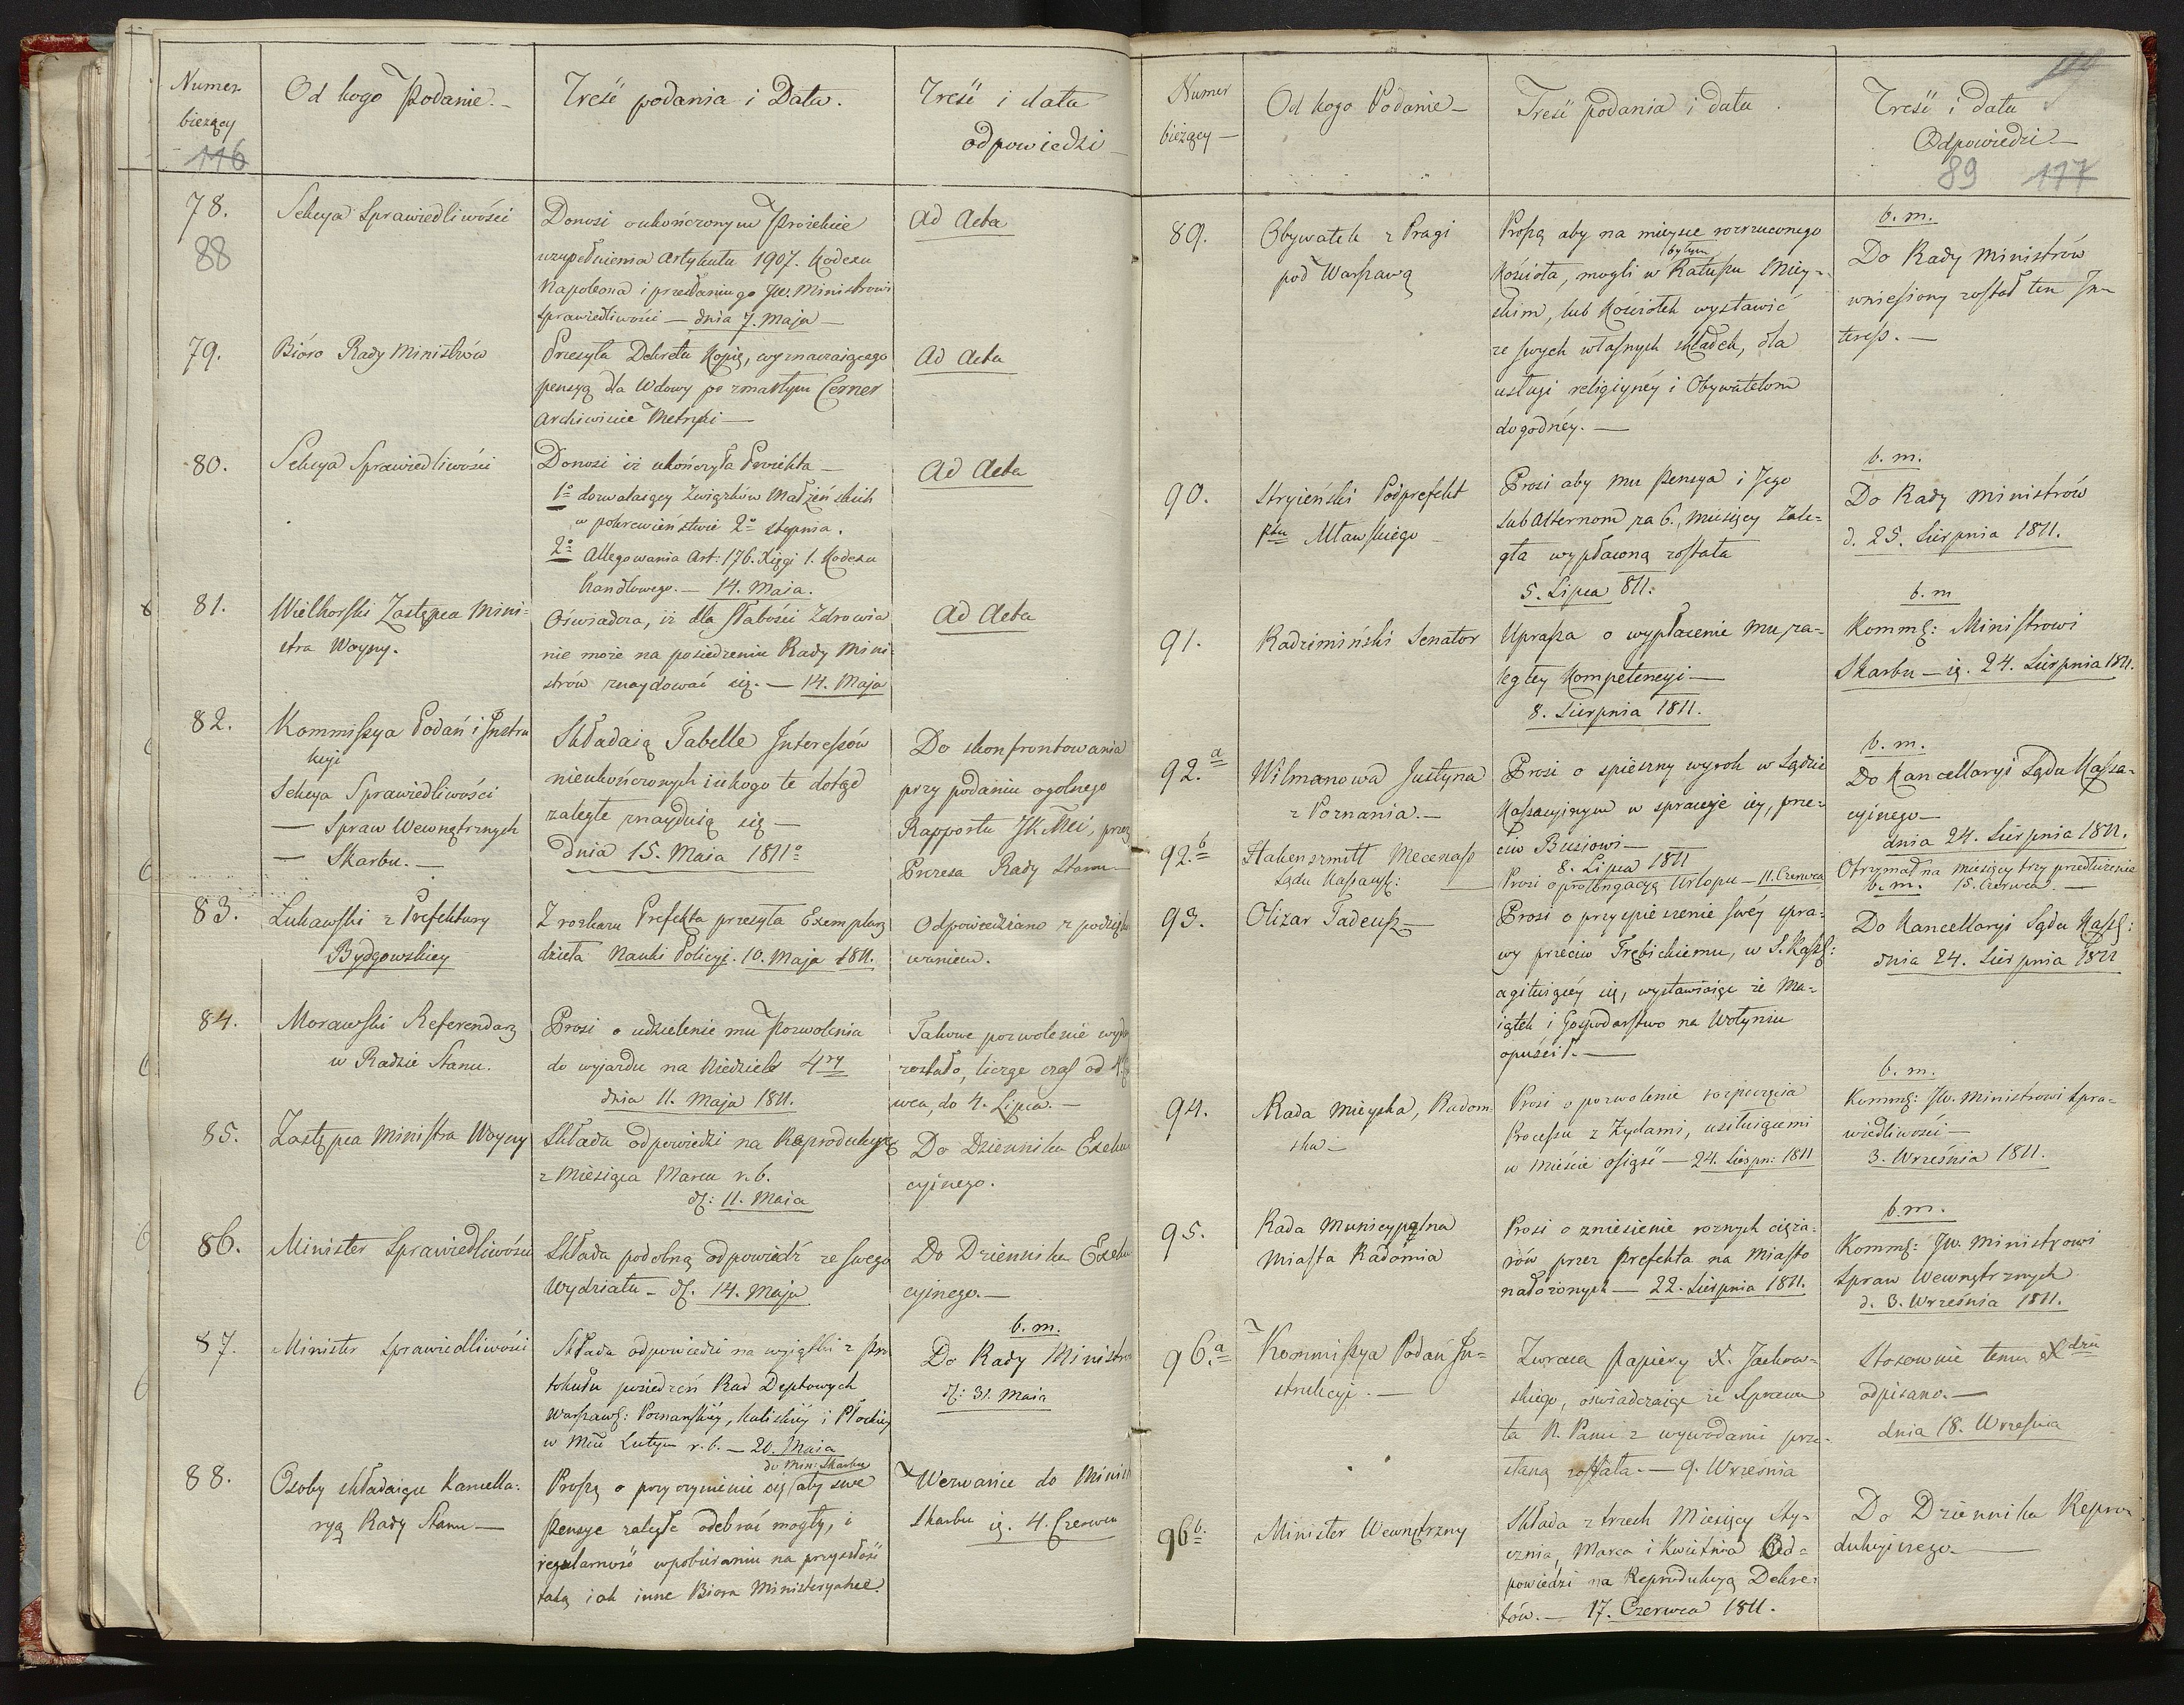 Numer
bieżący
116
Od kogo Podanie. -
Treść podania i Data.
Treść i data
odpowiedzi -
78.
88
Sekcya Sprawiedliwości
Donosi o ukończonym Proiekcie
uzupełnienia Artykułu 1907. Kodexu
Napoleona i przesłaniu go JW. Ministrowi
sprawiedliwości — dnia 7. Maja —
Ad Acta
79.
Bióro Rady Ministrów
Przesyła Dekretu Kopię, wyznaczaiącego
pensyą dla Wdowy po zmarłym Cerner
Archiwiście Metryki —
Ad Acta
80.
Sekcya Sprawiedliwości
Donosi iż ukończyła Proiekta —
1º dozwalaiący Związków Małżeńskich
w pokrewieństwie 2º stopnia.
2º Allegowania Art: 176. Xięgi 1. Kodexu
handlowego. — 14. Maia.
Ad Acta
81.
Wielhorski Zastępca Mini-
stra Woyny.
Oświadcza, iż dla słabości Zdrowia
nie może na posiedzeniu Rady Mini
strów znaydować się. — 14. Maja
Ad Acta
82.
Kommissya Podań i Instru
kcyi
Sekcya Sprawiedliwości
— Spraw Wewnętrznych
— Skarbu. —
Składaią Tabelle Interessów
nieukończonych i u kogo te dotąd
zaległe znayduią się —
Dnia 15. Maia 1811º
Do skonfrontowania
przy podaniu ogolnego
Rapportu JKMci, przez
Prezesa Rady Stanu —
83.
Łukawski z Prefektury
Bydgowskiey
Z rozkazu Prefekta przesyła Exemplarz
dzieła Nauki Policyi. 10. Maja 1811.
Odpowiedziano z podzięko
waniem.
84.
Morawski Referendarz
w Radzie Stanu.
Prosi o udzielenie mu pozwolenia
do wyjazdu na Niedziele 4ry
dnia 11. Maja 1811.
Takowe pozwolenie wyda
zostało, licząc czas od 4.
wca, do 4. Lipca. —
85.
Zastępca Ministra Woyny
Składa odpowiedzi na Reprodukcyę
z Miesiąca Marca r. b.
d: 11. Maia
Do Dziennika Exeku
cyjnego.
86.
Minister Sprawiedliwości
Składa podobną odpowiedź ze swego
Wydziału — d. 14. Maja
Do Dziennika Exeku
cyjnego. —
87.
Minister Sprawiedliwości
Składa odpowiedzi na wyiątki z Pro
tokułu posiedzeń Rad Deptowych
Warszaws: Poznańskiey, Kaliskiey i Płockiey
w Mcu Lutym r. b. — 20. Maia
b. m.
Do Rady Ministrów
d: 31. Maia
88.
Osoby składaiące Kancella-
ryą Rady Stanu —
do Min: Skarbu
Proszą o przyczynienie się aby swe
Pensye zaległe odebrać mogły, i
regularność w pobieraniu na przyszłość
taką iak inne Biora Ministeryalne.
Wezwanie do Minist
Skarbu ig. 4. Czerwca
Numer
bieżący —
Od kogo Podanie —
Treść podania i data
Treść i data
Odpowiedzi —
89 117
89.
Obywatele z Pragi
pod Warszawą
Proszą aby na mieysce rozrzuconego
byłym
Kościoła, mogli w Ratuszu Miey-
skim, lub Kościołek wystawić
ze swych własnych składek, dla
usługi religiyney i Obywatelom
dogodney. —
b. m.
Do Rady Ministrów
wniesiony został ten In-
teress. —
90.
Stryieński Podprefekt
Pttu Mławskiego
Prosi aby mu Pensya i Jego
Subalternom za 6. Miesięcy Zale-
gła wypłaconą została
5. Lipca 811.
b. m.
Do Rady Ministrów
d. 25. Sierpnia 1811.
91.
Radzimiński Senator
Uprasza o wypłacenie mu za-
ległey Kompetencyi —
8. Sierpnia 1811.
b. m
Komms: Ministrowi
Skarbu — ig. 24. Sierpnia 1811.
92.a
Wilmanowa Justyna
z Poznania. —
Prosi o spieszny wyrok w Sądzie
Kassacyinym w sprawie iey, prze-
ciw Busiowi —
8. Lipca 1811
b. m.
Do Kancellaryi Sądu Kassa-
cyjnego —
dnia 24. Sierpnia 1811.
92.b
Hakenszmitt Mecenas
Sądu Kassacyj: —
Prosi o prolongacyą Urlopu — 11. Czerwca
Otrzymał na miesięcy trzy przedłużenie
b. m. 15. Czerwca. —
93.
Olizar Tadeusz —
Prosi o przyspieszenie swéy spra-
wy przeciw Trębickiemu, w S. Kass:
agituiącéy się, wystawiaiąc że Ma-
iątek i Gospodarstwo na Wołyniu
opuścił. —
Do Kancellaryi Sądu Kass:
dnia 24. Sierpnia 1811
94.
Rada Mieyska, Radom
ska —
Prosi o pozwolenie rozpoczęcia
Processu z Żydami, usiłuiącemi
w mieście osiąść — 24. Sierpn: 1811
b. m.
Komms: JW. Ministrowi Spra-
wiedliwości —
3. Września 1811.
95.
Rada Municypalna
Miasta Radomia
Prosi o zniesienie roznych cięża-
rów przez Prefekta na Miasto
nałożonych — 22. Sierpnia 1811.
b. m.
Komms: JW. Ministrowi
Spraw Wewnętrznych
d. 3. Września 1811.
96.a
Kommissya Podań In-
strukcyi. —
Zwraca papiery X. Jachow-
skiego, oświadczaiąc że Sprawa
ta N. Panu z wywodami prze-
słaną została. — 9. Września
Stosownie temu Xdzu
odpisano. —
dnia 18. Września
96b.
Minister Wewnętrzny
Składa z trzech Miesięcy Sty-
cznia, Marca i Kwietnia Od-
powiedzi na Reprodukcyą Dekre-
tów. — 17. Czerwca 1811.
Do Dziennika Repro-
dukcyinego. —